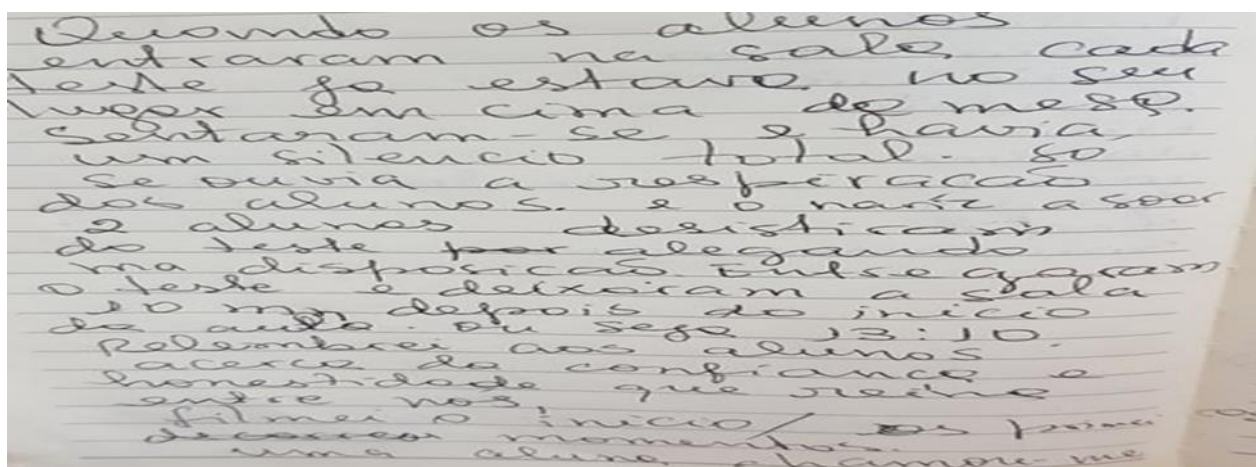 Quando os alunos
entraram na sala, cada
teste ja estava no seu
lugar em cima da mesa.
Sentaram-se e havia
um silencio total. so
se ouvia a respiracão
dos alunos. e o nariz a soar
2 alunos desisticam
do teste por alegando
ma disposicão Entregaram
o teste e deixaram a sala
10 mn depois do inicio
da aula. ou seja 13:10.
Relembrei aos alunos
acerca da confiança e
honestidade que reina
entre nos,
filmei o inicio/ os primei
momentos.
uma aluna chamou-me